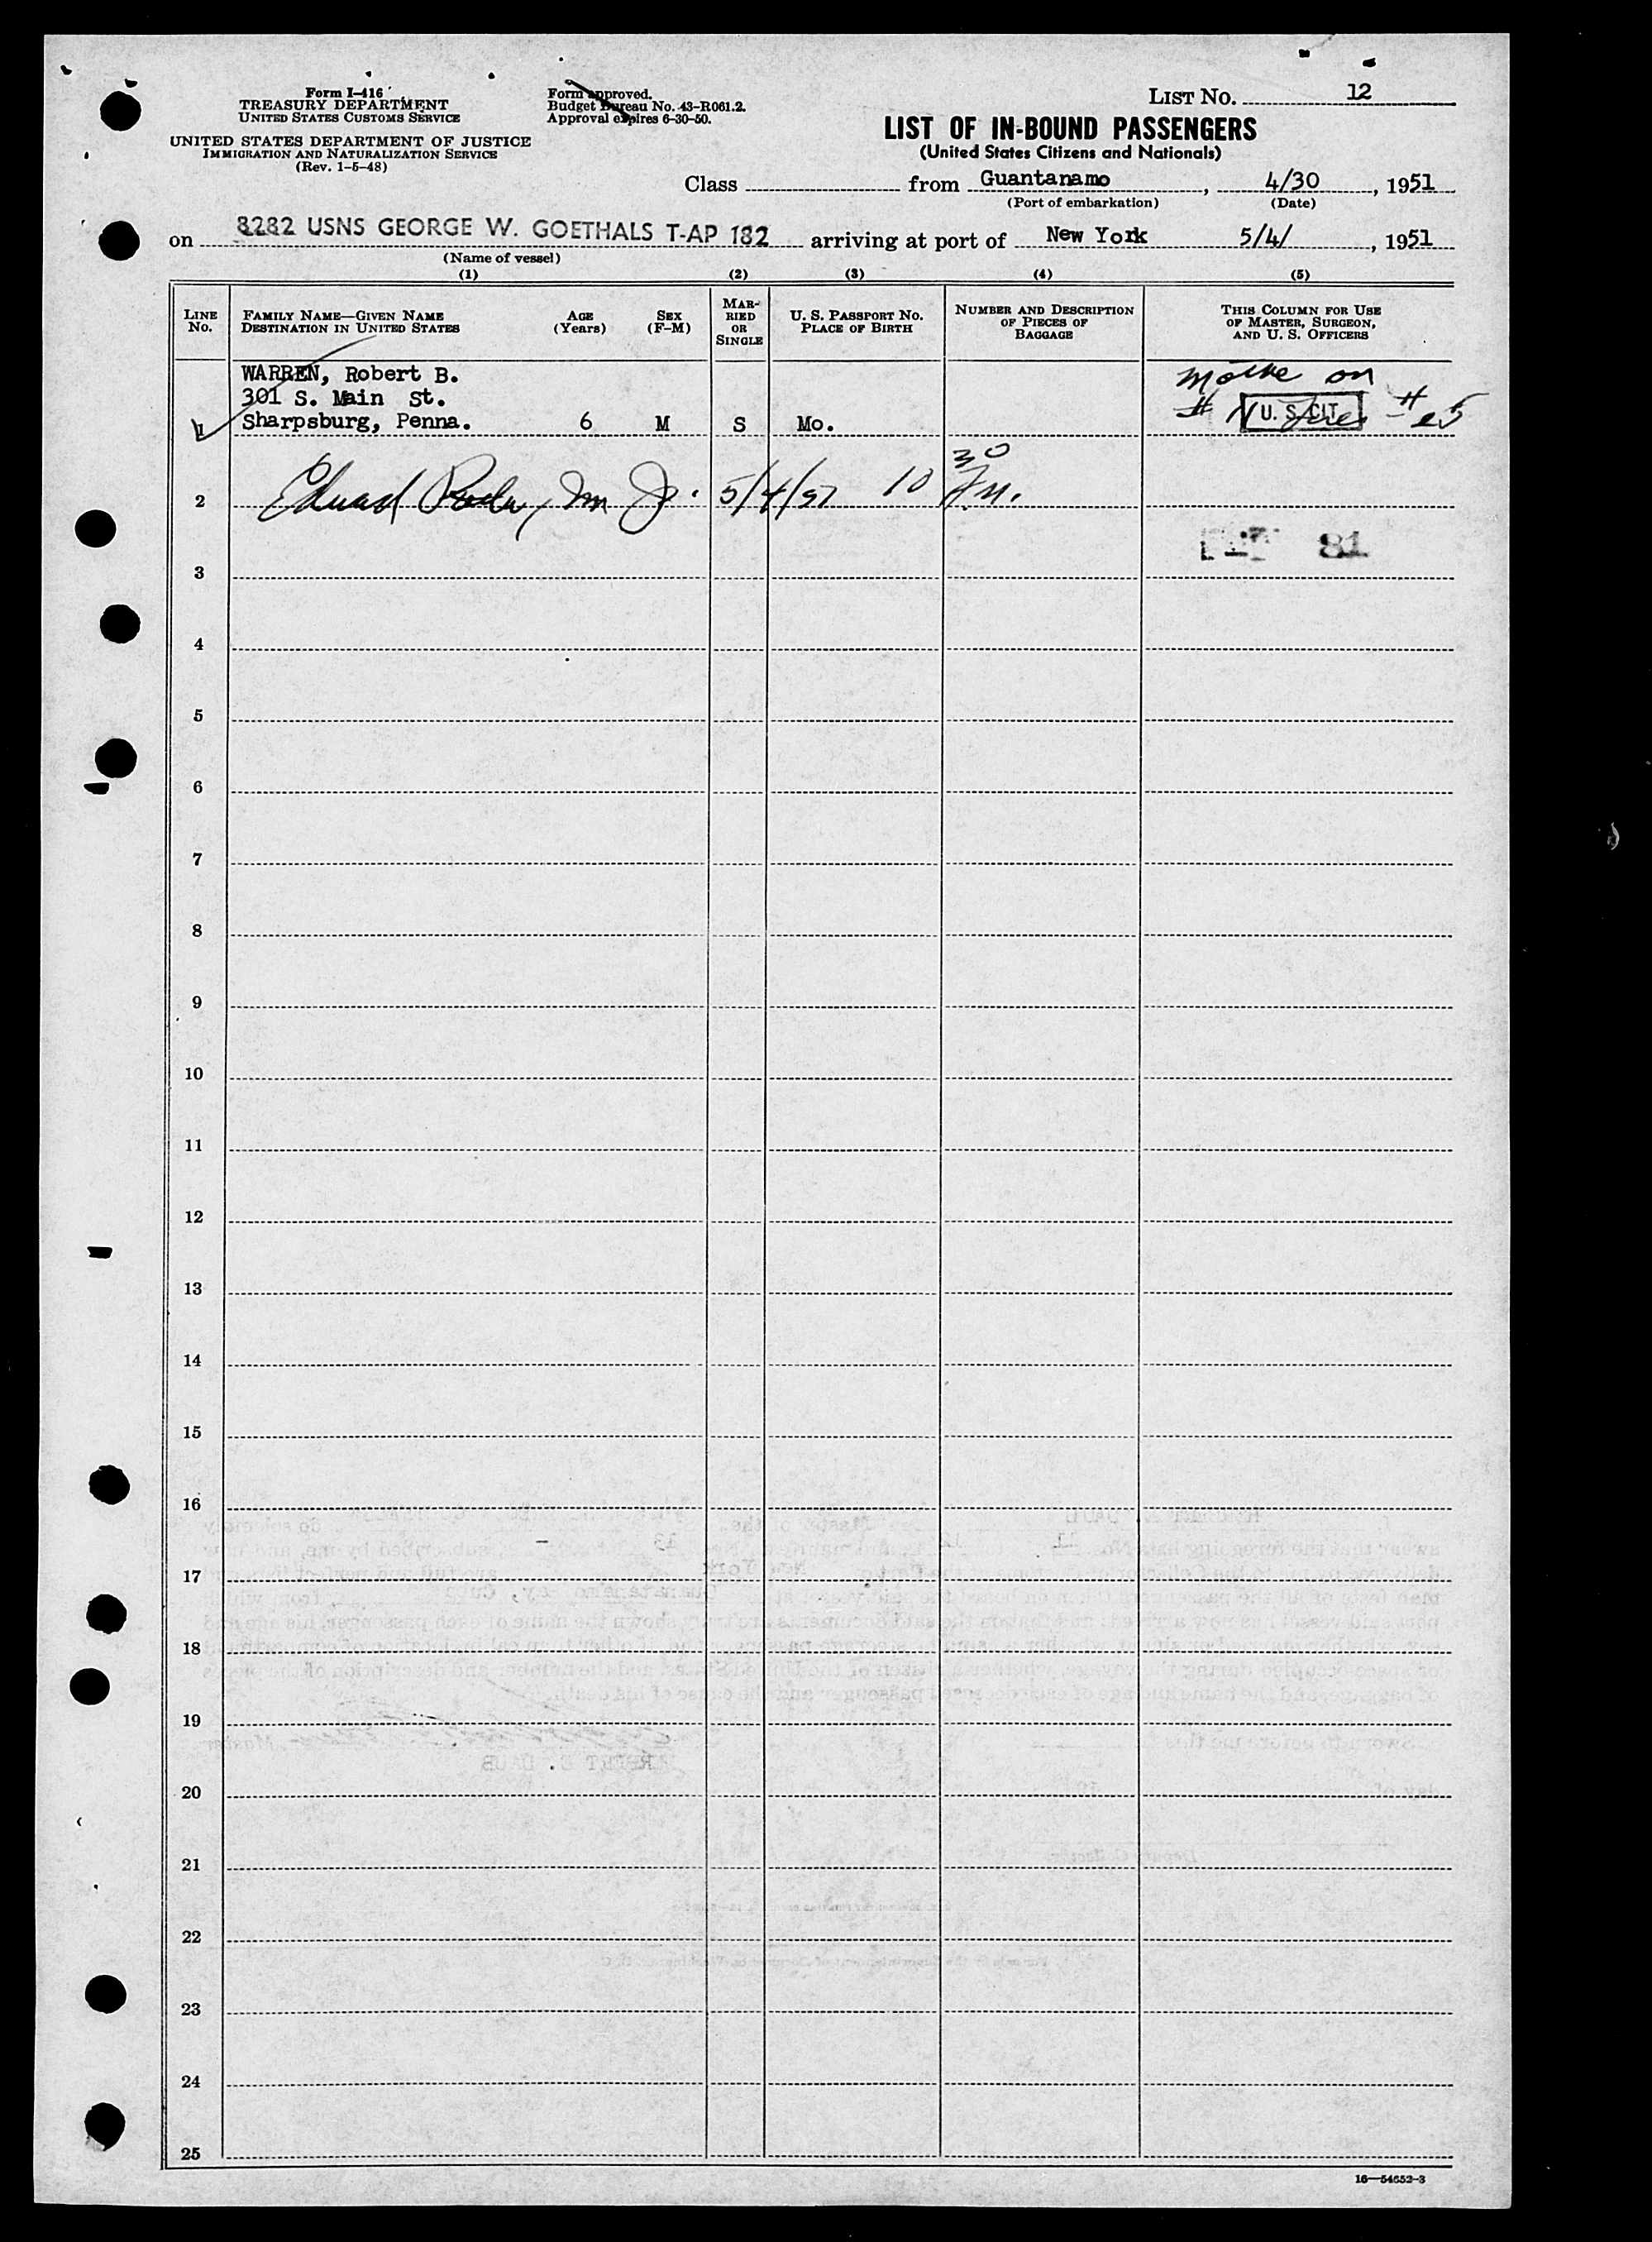 Form I-416
TREASURY DEPARTMENT
UNITED STATES CUSTOMS SERVICE
UNITED STATES DEPARTMENT OF JUSTICE
IMMIGRATION AND NATURALIZATION SERVICE
(Rev. 1-5-48)
Form approved.
Budget Bureau No. 43-R061.2.
Approval expires 6-30-50.
LIST NO. 12
LIST OF IN-BOUND PASSENGERS
(United States Citizens and Nationals)
Class from Guantanamo, 4/30, 1951
(Port of embarkation) (Date)
on 8282 USNS GEORGE W. GOETHALS T-AP 182 arriving at port of New York 5/4/, 1951
(Name of vessel)
(1) (2) (3) (4) (5)
LINE NO.
FAMILY NAME—GIVEN NAME
DESTINATION IN UNITED STATES
AGE (Years)
SEX (F-M)
MARRIED OR SINGLE
U. S. PASSPORT NO.
PLACE OF BIRTH
NUMBER AND DESCRIPTION OF PIECES OF BAGGAGE
THIS COLUMN FOR USE OF MASTER, SURGEON, AND U. S. OFFICERS
WARREN, Robert B.
301 S. Main St.
1 Sharpsburg, Penna. 6 M S Mo.
on
U. S. CIT.
2 5/4/51 10 30
81
3
4
5
6
7
8
9
10
11
12
13
14
15
16
17
18
19
20
21
22
23
24
25
16—54652-3